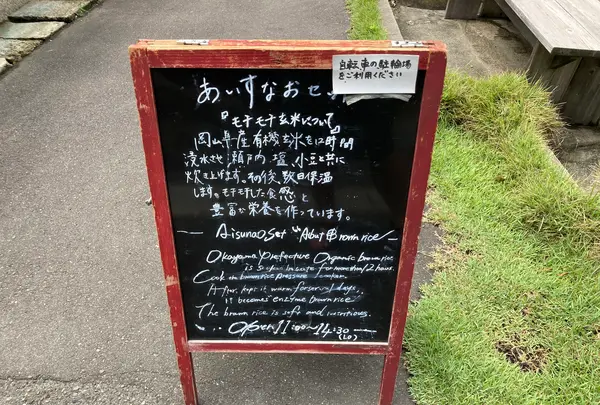 自転車の駐輪場
をご利用ください
あいすなおセ
『モチモチ玄米について』
岡山県産有機玄米を12時間
浸水させ瀬戸内塩、小豆と共に
炊き上げます。その後、数日保温
します。モチモチした食感と
豊富な栄養を作っています。
Aisunao Set "About Brown rice"
Okayama Prefecture Organic brown rice
is in water for more than 12 hours.
Cook in brown rice pressure
After, keep it warm for several days,
it becomes enzyme brown rice
The brown rice is soft and nutritious.
Open 11:00〜14:30
(LO)